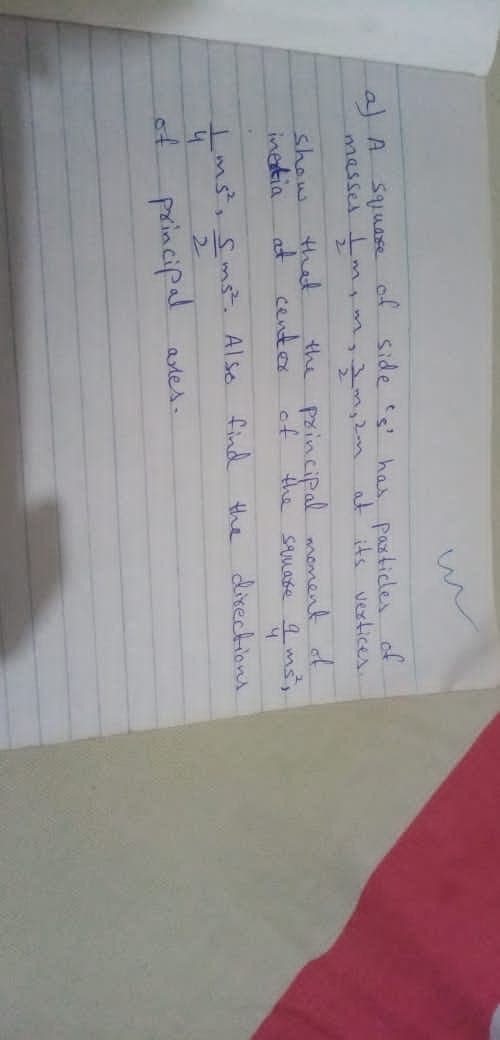 a) A square of side 's' has particles of
masses 1/2 m, m, 3/2 m, 2m at its vertices.
Show that the principal moment of
inertia at center of the square 9/4 ms²,
1/4 ms², 5/2 ms². Also find the directions
of principal axes.